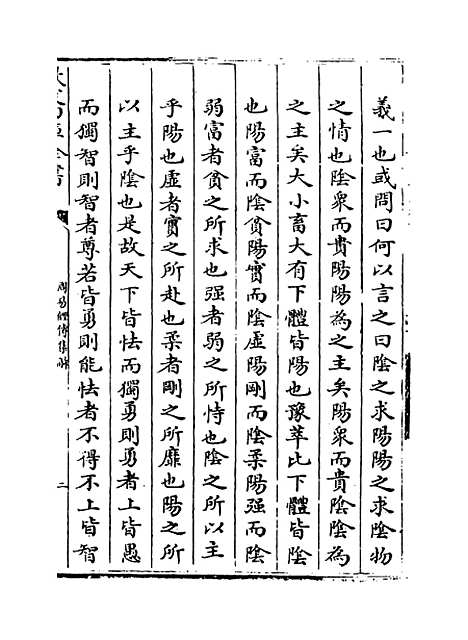 義一也或問曰何以言之曰陰之求陽陽之求陰物
之情也陰衆而貴陽陽為之主矣陽衆而貴陰陰為
之主矣大小畜大有下體皆陽也豫萃比下體皆陰
也陽富而陰貧陽實而陰虛陽剛而陰柔陽强而陰
弱富者貧之所求也强者弱之所恃也陰之所以主
乎陽也虛者實之所赴也柔者剛之所靡也陽之所
以主乎陰也是故天下皆怯而獨勇則勇者上皆愚
而獨智則智者尊若皆勇則能怯者不得不上皆智
周易經傳集解
二